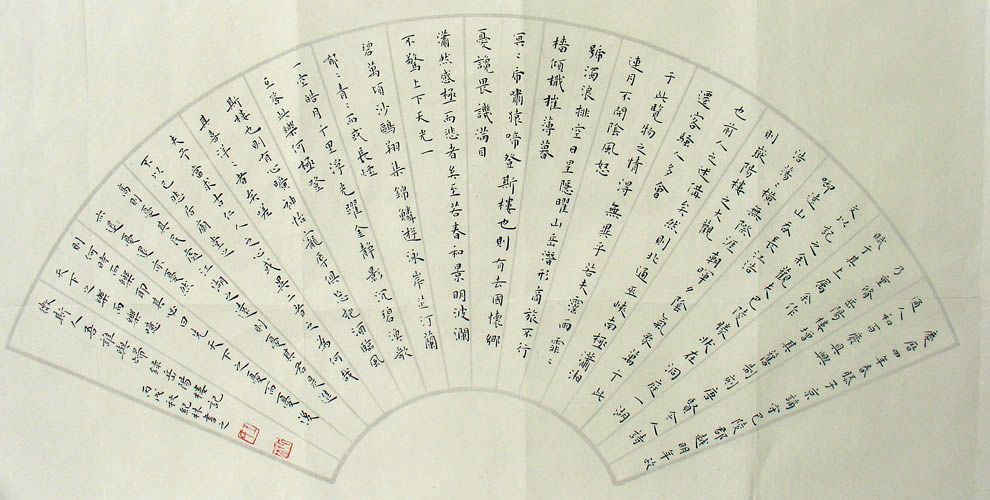 慶曆四年春滕子京謫守巴陵郡越明年政
通人和百廢具興
乃重脩岳陽樓增其舊制刻唐賢今人詩
賦于其上屬余作
文以記之余觀夫巴陵勝狀在洞庭一湖
啣遠山吞長江浩
浩蕩〻橫無際涯朝暉夕陰氣象萬千此
則嶽陽樓之大觀
也前人之述備矣然則北通巫峽南極瀟湘
遷客騷人多會
于此覽物之情得無異乎若夫霪雨霏〻
連月不開陰風怒
號濁浪排空日星隱曜山岳潛形商旅不行
檣傾檝摧薄暮
冥〻虎嘯猿啼登斯樓也則有去國懷鄉
憂讒畏譏滿目
蕭然感極而悲者矣至若春和景明波瀾
不驚上下天光一
碧萬頃沙鷗翔集錦鱗遊泳岸芷汀蘭
郁〻青〻而或長煙
一空皓月千里浮光躍金靜影沉碧漁歌
互答此樂何極登
斯樓也則有心曠神怡寵辱俱忘把酒臨風
其喜洋〻者矣嗟
夫予嘗求古仁人之心或異二者之為何哉
不以己悲居廟堂之
高則憂其民處江湖之遠則憂其君是進
亦憂退亦憂然
則何時而樂耶其必曰先天下之憂而憂後
天下之樂而樂噫
微斯人吾誰與歸錄岳陽樓記
丙戌秋紀林書之